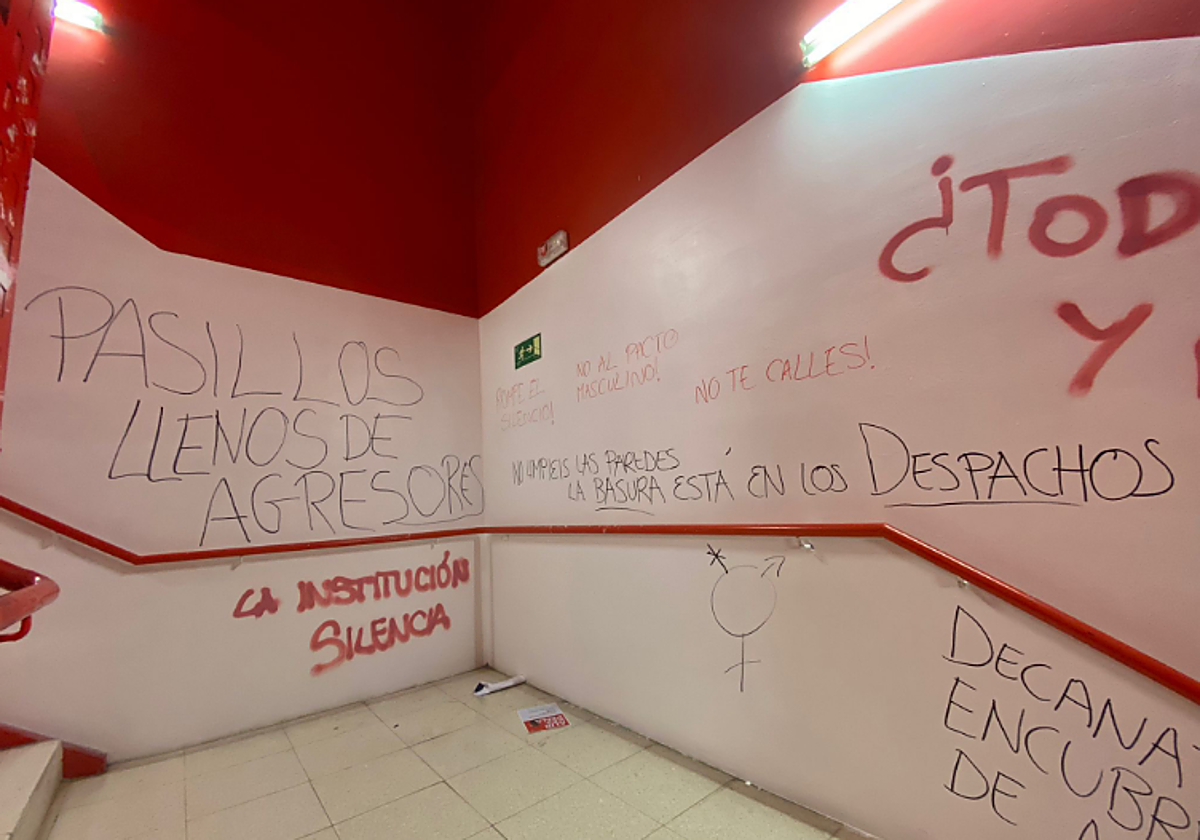 PASILLOS
LLENOS DE
AGRESORES
LA INSTITUCIÓN
SILENCIA
ROMPE EL
SILENCIO!
NO AL PACTO
MASCULINO!
NO TE CALLES!
NO LIMPIEIS LAS PAREDES
LA BASURA ESTÁ EN LOS DESPACHOS
¿TOD
Y
DECANAT
ENCUBR
DE